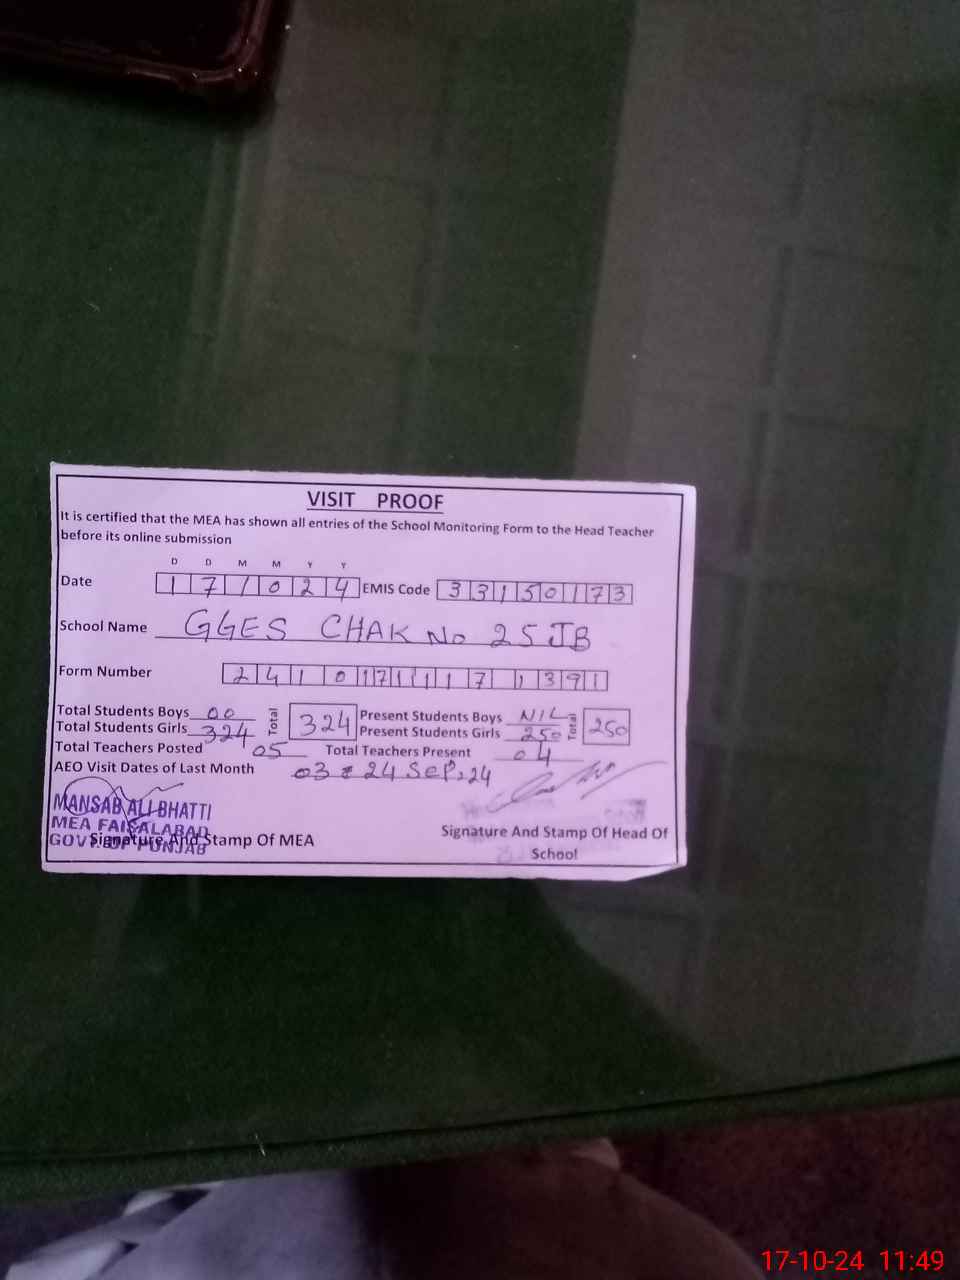 VISIT PROOF
It is certified that the MEA has shown all entries of the School Monitoring Form to the Head Teacher
before its online submission
D D M M Y Y
Date 1 7 1 0 2 4 EMIS Code 3 3 1 5 0 1 7 3
School Name GGES CHAK No 25 JB
Form Number 2 4 1 0 1 7 1 1 1 7 1 3 9 1
Total Students Boys 00 Total 324 Present Students Boys NIL Total 250
Total Students Girls 324 Present Students Girls 250
Total Teachers Posted 05 Total Teachers Present 04
AEO Visit Dates of Last Month 03 & 24 SEP, 24
MANSAB ALI BHATTI
MEA FAISALABAD
GOVT. OF PUNJAB
Signature And Stamp Of MEA
Signature And Stamp Of Head Of
School
17-10-24 11:49